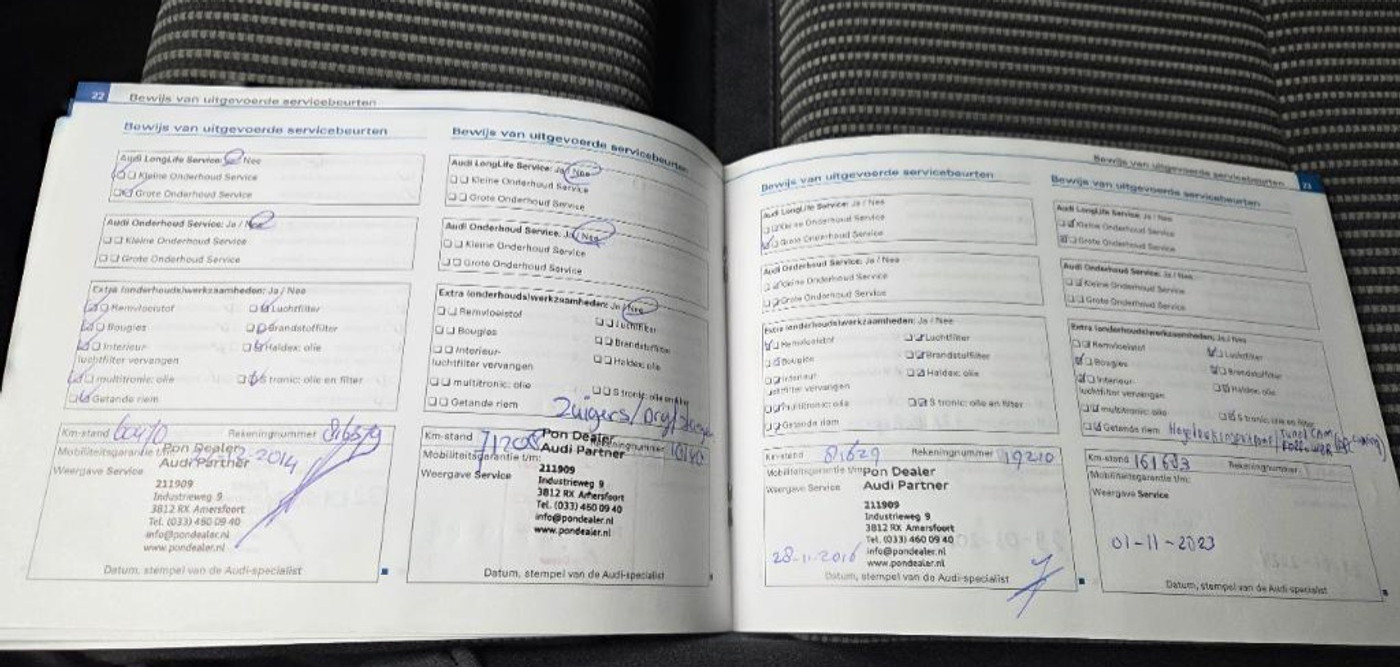 22
Bewijs van uitgevoerde servicebeurten
Bewijs van uitgevoerde servicebeurten
Audi LongLife Service: Ja / Nee
Kleine Onderhoud Service
Grote Onderhoud Service
Audi Onderhoud Service: Ja / Nee
Kleine Onderhoud Service
Grote Onderhoud Service
Extra (onderhouds)werkzaamheden: Ja / Nee
Remvloeistof
Luchtfilter
Bougies
Brandstoffilter
Interieur-
luchtfilter vervangen
Haldex: olie
multitronic: olie
S tronic: olie en filter
Getande riem
Km-stand
Rekeningnummer
Mobiliteitsgarantie t/m:
Weergave Service
Pon Dealer
Audi Partner
211909
Industrieweg 9
3812 RX Amersfoort
Tel. (033) 460 09 40
info@pondealer.nl
www.pondealer.nl
Datum, stempel van de Audi-specialist
Bewijs van uitgevoerde servicebeurten
Audi LongLife Service: Ja / Nee
Kleine Onderhoud Service
Grote Onderhoud Service
Audi Onderhoud Service: Ja / Nee
Kleine Onderhoud Service
Grote Onderhoud Service
Extra (onderhouds)werkzaamheden: Ja / Nee
Remvloeistof
Luchtfilter
Bougies
Brandstoffilter
Interieur-
luchtfilter vervangen
Haldex: olie
multitronic: olie
S tronic: olie en filter
Getande riem
Zuigers/
Km-stand
Rekeningnummer
Mobiliteitsgarantie t/m:
Weergave Service
Pon Dealer
Audi Partner
211909
Industrieweg 9
3812 RX Amersfoort
Tel. (033) 460 09 40
info@pondealer.nl
www.pondealer.nl
Datum, stempel van de Audi-specialist
Bewijs van uitgevoerde servicebeurten
23
Bewijs van uitgevoerde servicebeurten
Audi LongLife Service: Ja / Nee
Kleine Onderhoud Service
Grote Onderhoud Service
Audi Onderhoud Service: Ja / Nee
Kleine Onderhoud Service
Grote Onderhoud Service
Extra (onderhouds)werkzaamheden: Ja / Nee
Remvloeistof
Luchtfilter
Bougies
Brandstoffilter
Interieur-
luchtfilter vervangen
Haldex: olie
multitronic: olie
S tronic: olie en filter
Getande riem
Km-stand 81629 Rekeningnummer 19210
Mobiliteitsgarantie t/m:
Weergave Service
Pon Dealer
Audi Partner
211909
Industrieweg 9
3812 RX Amersfoort
Tel. (033) 460 09 40
info@pondealer.nl
www.pondealer.nl
28-11-2016
Datum, stempel van de Audi-specialist
Bewijs van uitgevoerde servicebeurten
Audi LongLife Service: Ja / Nee
Kleine Onderhoud Service
Grote Onderhoud Service
Audi Onderhoud Service: Ja / Nee
Kleine Onderhoud Service
Grote Onderhoud Service
Extra (onderhouds)werkzaamheden: Ja / Nee
Remvloeistof
Luchtfilter
Bougies
Brandstoffilter
Interieur-
luchtfilter vervangen
Haldex: olie
multitronic: olie
S tronic: olie en filter
Getande riem
Km-stand
Rekeningnummer
Mobiliteitsgarantie t/m:
Weergave Service
01-11-2023
Datum, stempel van de Audi-specialist